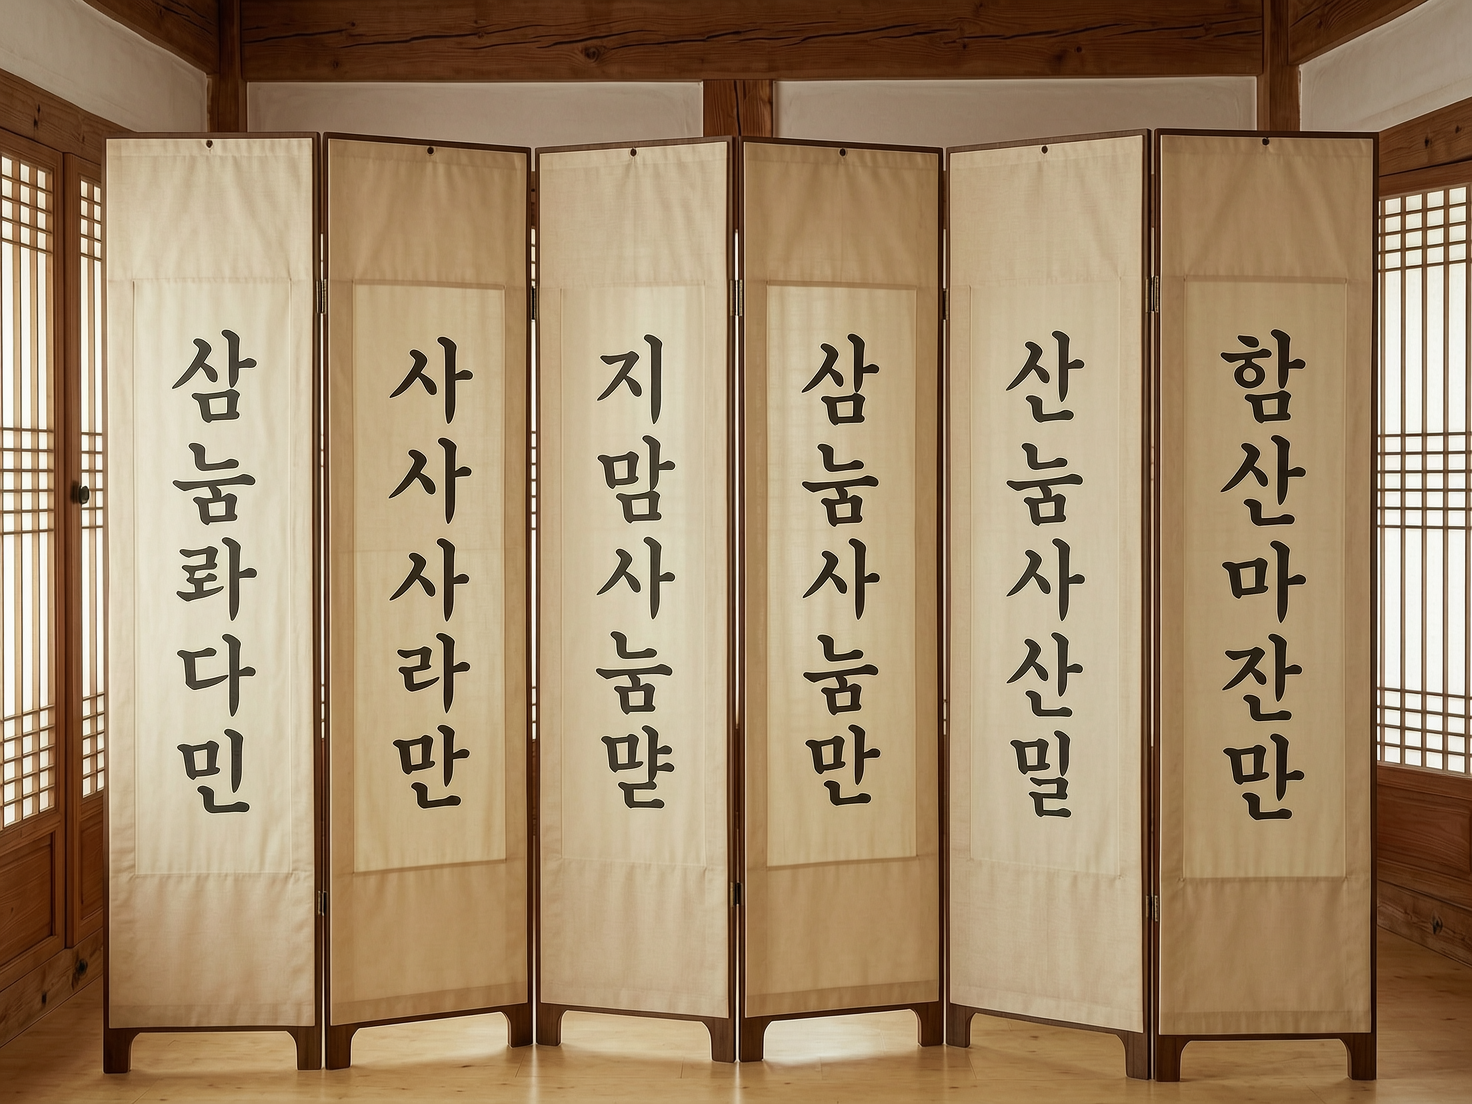 삼눔롸다민
사사사라만
지맘사눔먈
삼눔사눔만
산눔사산밀
함산마잔만